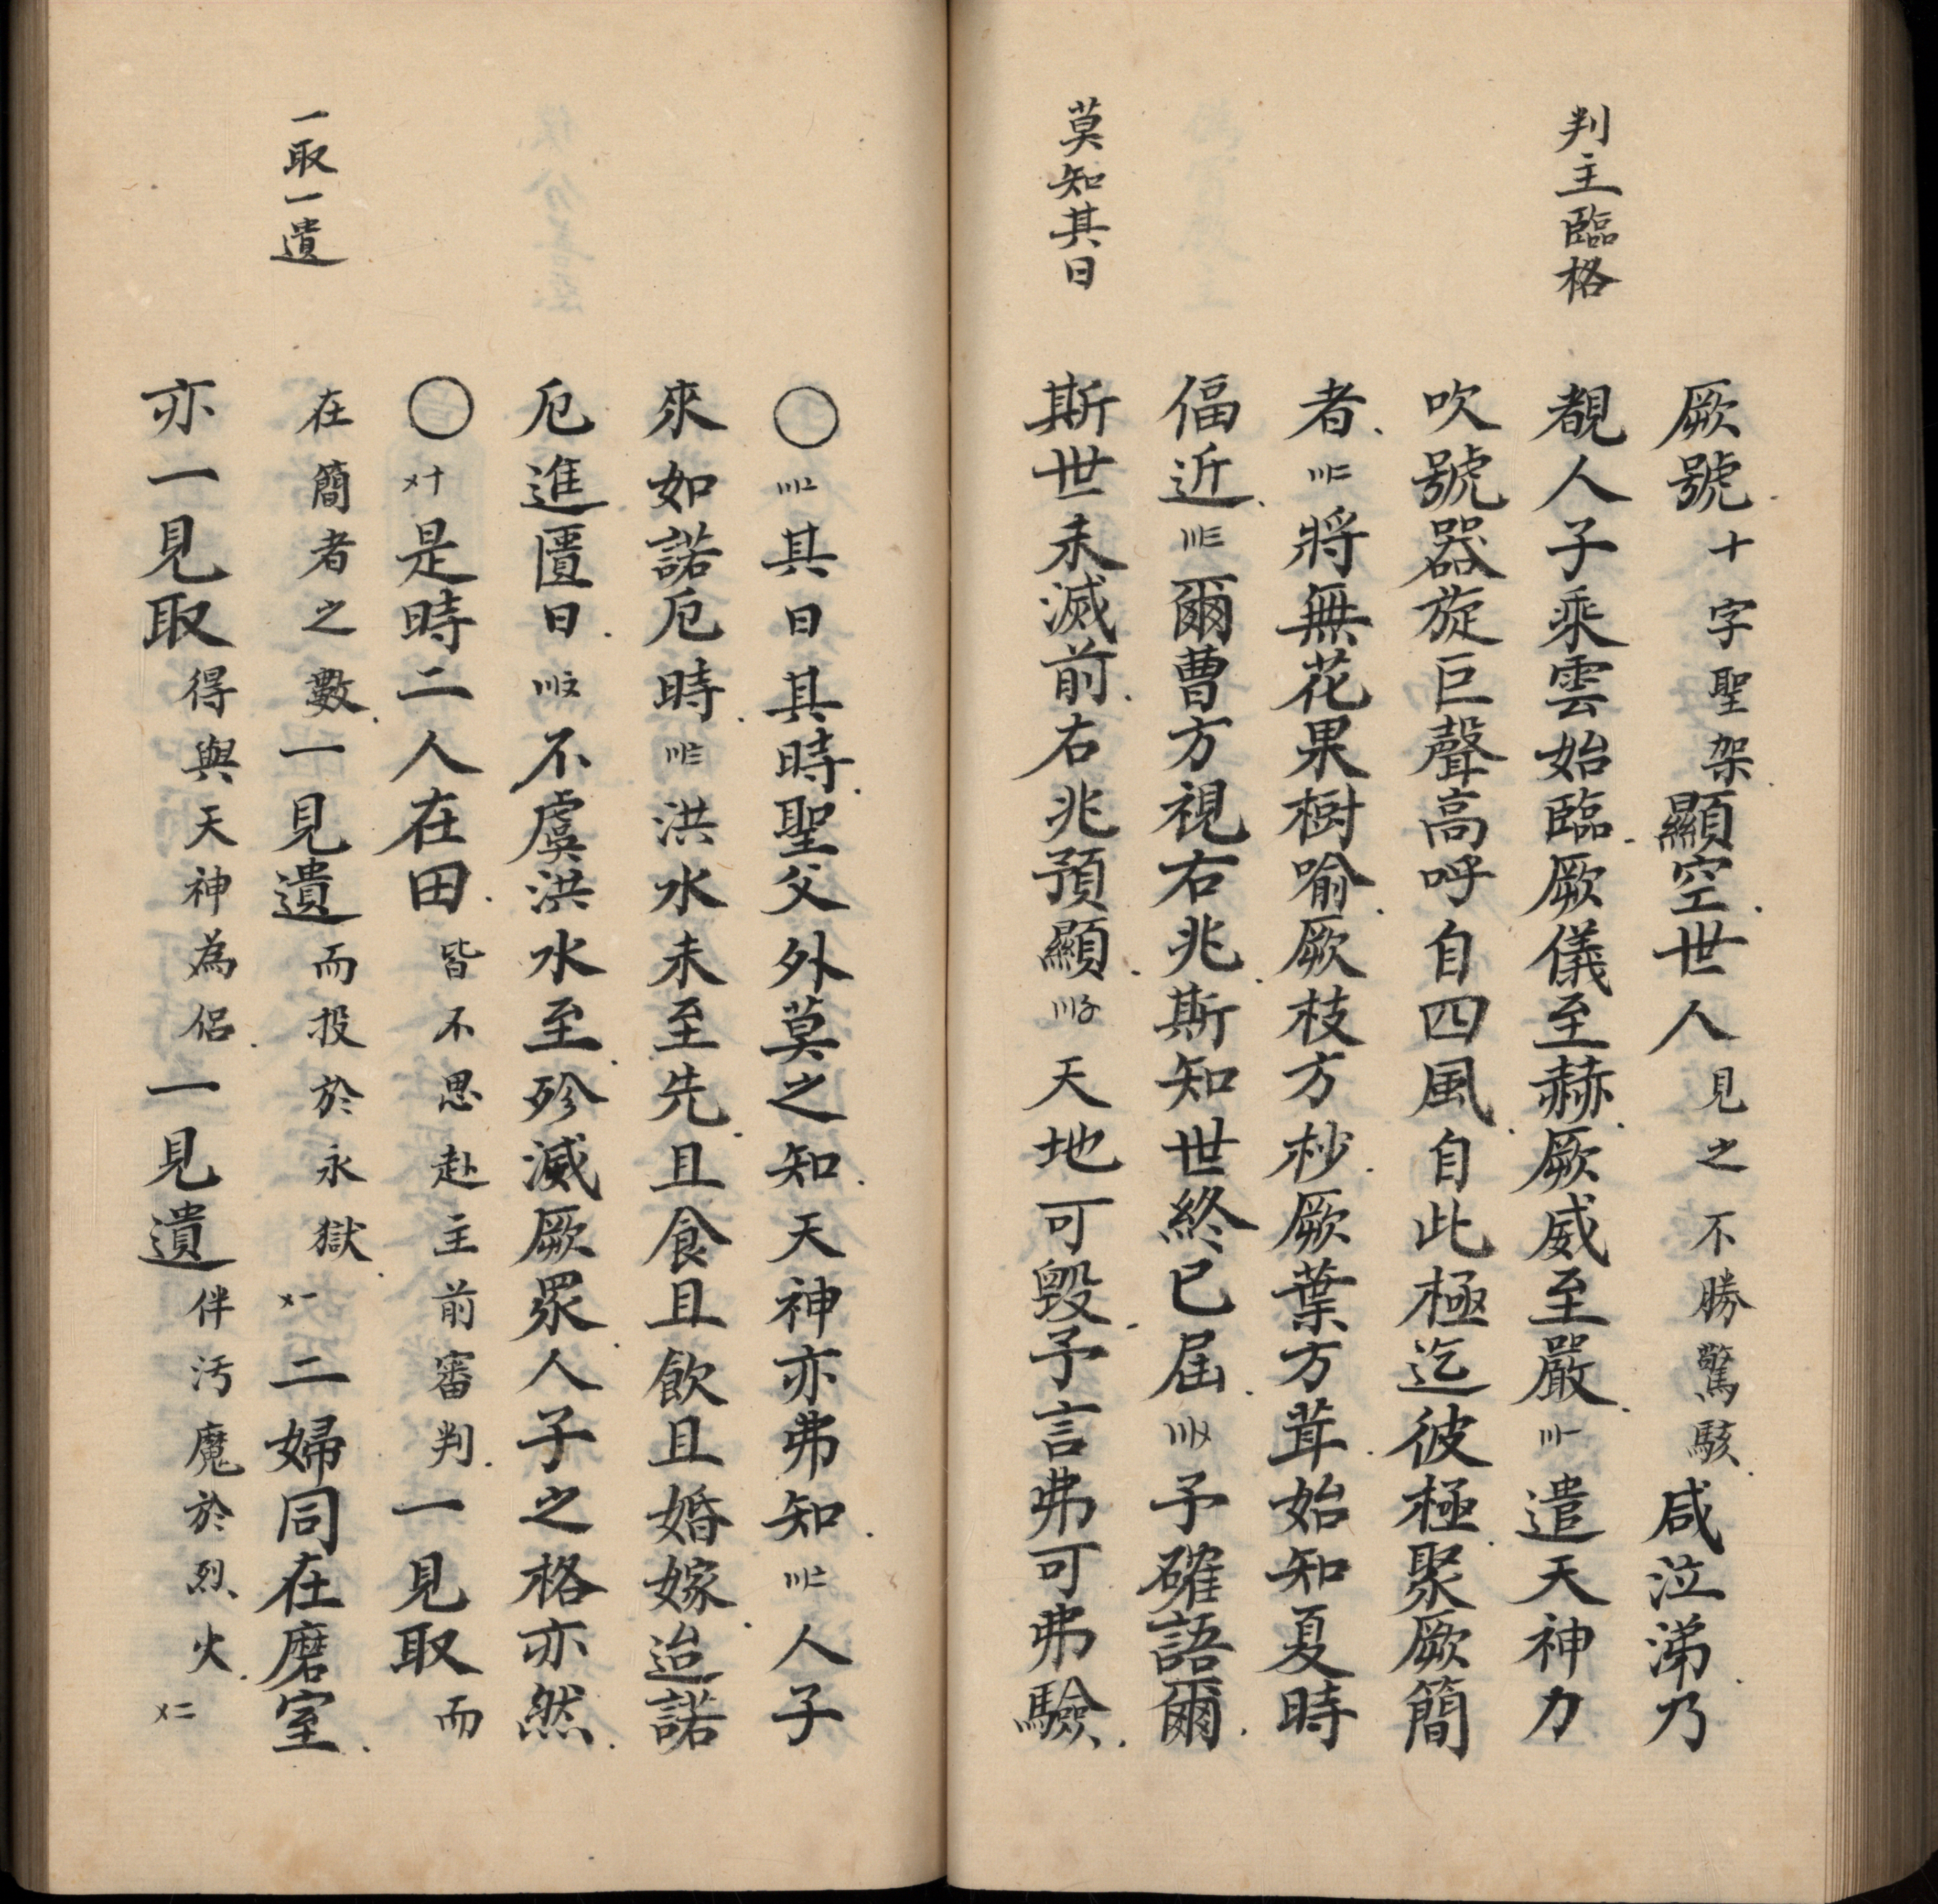 厥號十字聖架顯空世人見之不勝驚駭咸泣涕乃
判主臨格
覩人子乘雲始臨厥儀至赫厥威至嚴〣一遣天神力
吹號器旋巨聲高呼自四風自此極迄彼極聚厥簡
者〣二將無花果樹喻厥枝方杪厥葉方茸始知夏時
偪近〣三爾曹方視右兆斯知世終已屆〣〤予確語爾
莫知其日
斯世未滅前右兆預顯〣〥天地可毀予言弗可弗驗
〇〣〦其日其時聖父外莫之知天神亦弗知〣〧人子
來如諾厄時〣〨洪水未至先且食且飲且婚嫁迨諾
厄進匱日〣〩不虞洪水至殄滅厥眾人子之格亦然
〇〤十是時二人在田皆不思赴主前審判一見取而
一取一遺
在簡者之數一見遺而投於永獄〤一二婦同在磨室
亦一見取得與天神為侶一見遺伴汚魔於烈火〤二